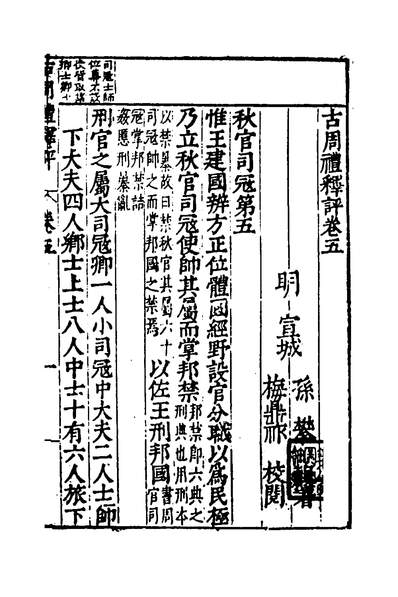 古周禮釋評卷五
明 宣城 孫攀
梅鼎祚 校閱
秋官司寇第五
惟王建國辨方正位體國經野設官分職以為民極
乃立秋官司寇使帥其屬而掌邦禁
邦禁即六典之
刑典也用刑本
以禁暴故曰禁秋官其屬六十
司寇帥之而掌邦國之禁焉
以佐王刑邦國
書周
官司
寇掌邦禁詰
姦慝刑暴亂
刑官之屬大司寇卿一人小司寇中大夫二人士師
下大夫四人鄉士上士八人中士十有六人旅下
卷五
一